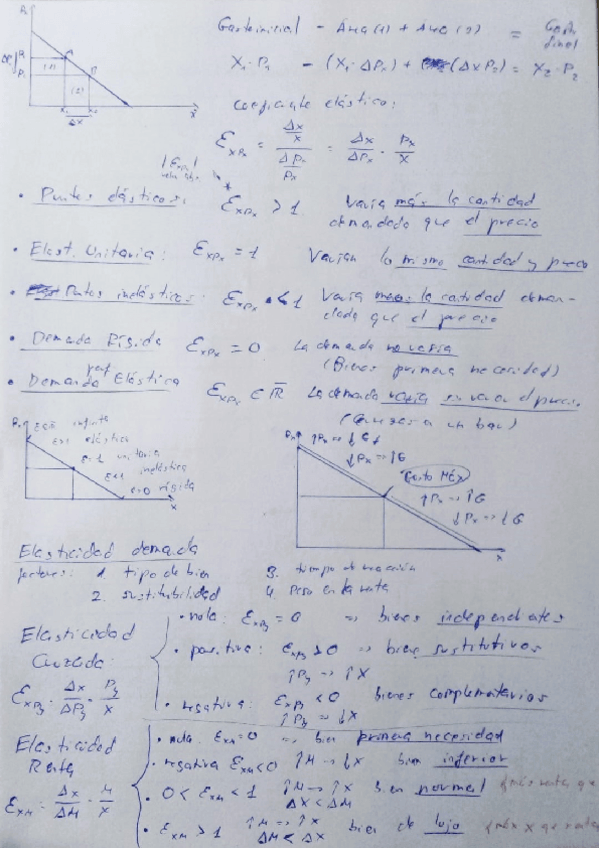 Gasto inicial - Area (1) + Area (2) = Gasto final
X₁ · P₁ - (X₁ · ΔPx) + (ΔX P₂) = X₂ · P₂
Coeficiente elástico:
ƐxPx = (Δx/x)/(ΔPx/Px) = Δx/ΔPx · Px/x
|ƐxPx|
• Puntos elásticos: ƐxPx > 1 Varía más la cantidad
demandada que el precio
• Elast. Unitaria: ƐxPx = 1 Varían lo mismo cantidad y precio
• Puntos inelásticos: ƐxPx < 1 Varía menos la cantidad deman-
dada que el precio
• Demanda Rígida ƐxPx = 0 La demanda no varía
(Bienes primera necesidad)
• Demanda perf Elástica ƐxPx ∈ R̄ La demanda varía sin variar el precio
Px Ɛ=∞ infinita
Ɛ>1 elástica
Ɛ=1 unitaria
Ɛ<1 inelástica
Ɛ=0 rígida
x
Px ↑Px ⇒ ↓G
↓Px ⇒ ↑G
Gasto MÁX
↑Px → ↑G
↓Px ⇒ ↓G
x
Elasticidad demanda
factores: 1. tipo de bien 3. tiempo de reacción
2. sustituibilidad 4. Peso en la renta
Elasticidad
Cruzada:
ƐxPy = Δx/ΔPy · Py/x
• nula: ƐxPy = 0 ⇒ bienes independientes
• positiva: ƐxPy > 0 ⇒ bienes sustitutivos
↑Py → ↑X
• negativa: ƐxPy < 0 bienes complementarios
↑Py ⇒ ↓X
Elasticidad
Renta
ƐxM = Δx/ΔM · M/x
• nula: ƐxM = 0 ⇒ bien primera necesidad
• negativa ƐxM < 0 ↑M → ↓X bien inferior
• 0 < ƐxM < 1 ↑M → ↑X bien normal (más renta que
ΔX < ΔM
• ƐxM > 1 ↑M ⇒ ↑X bien de lujo (más x que renta
ΔM < ΔX